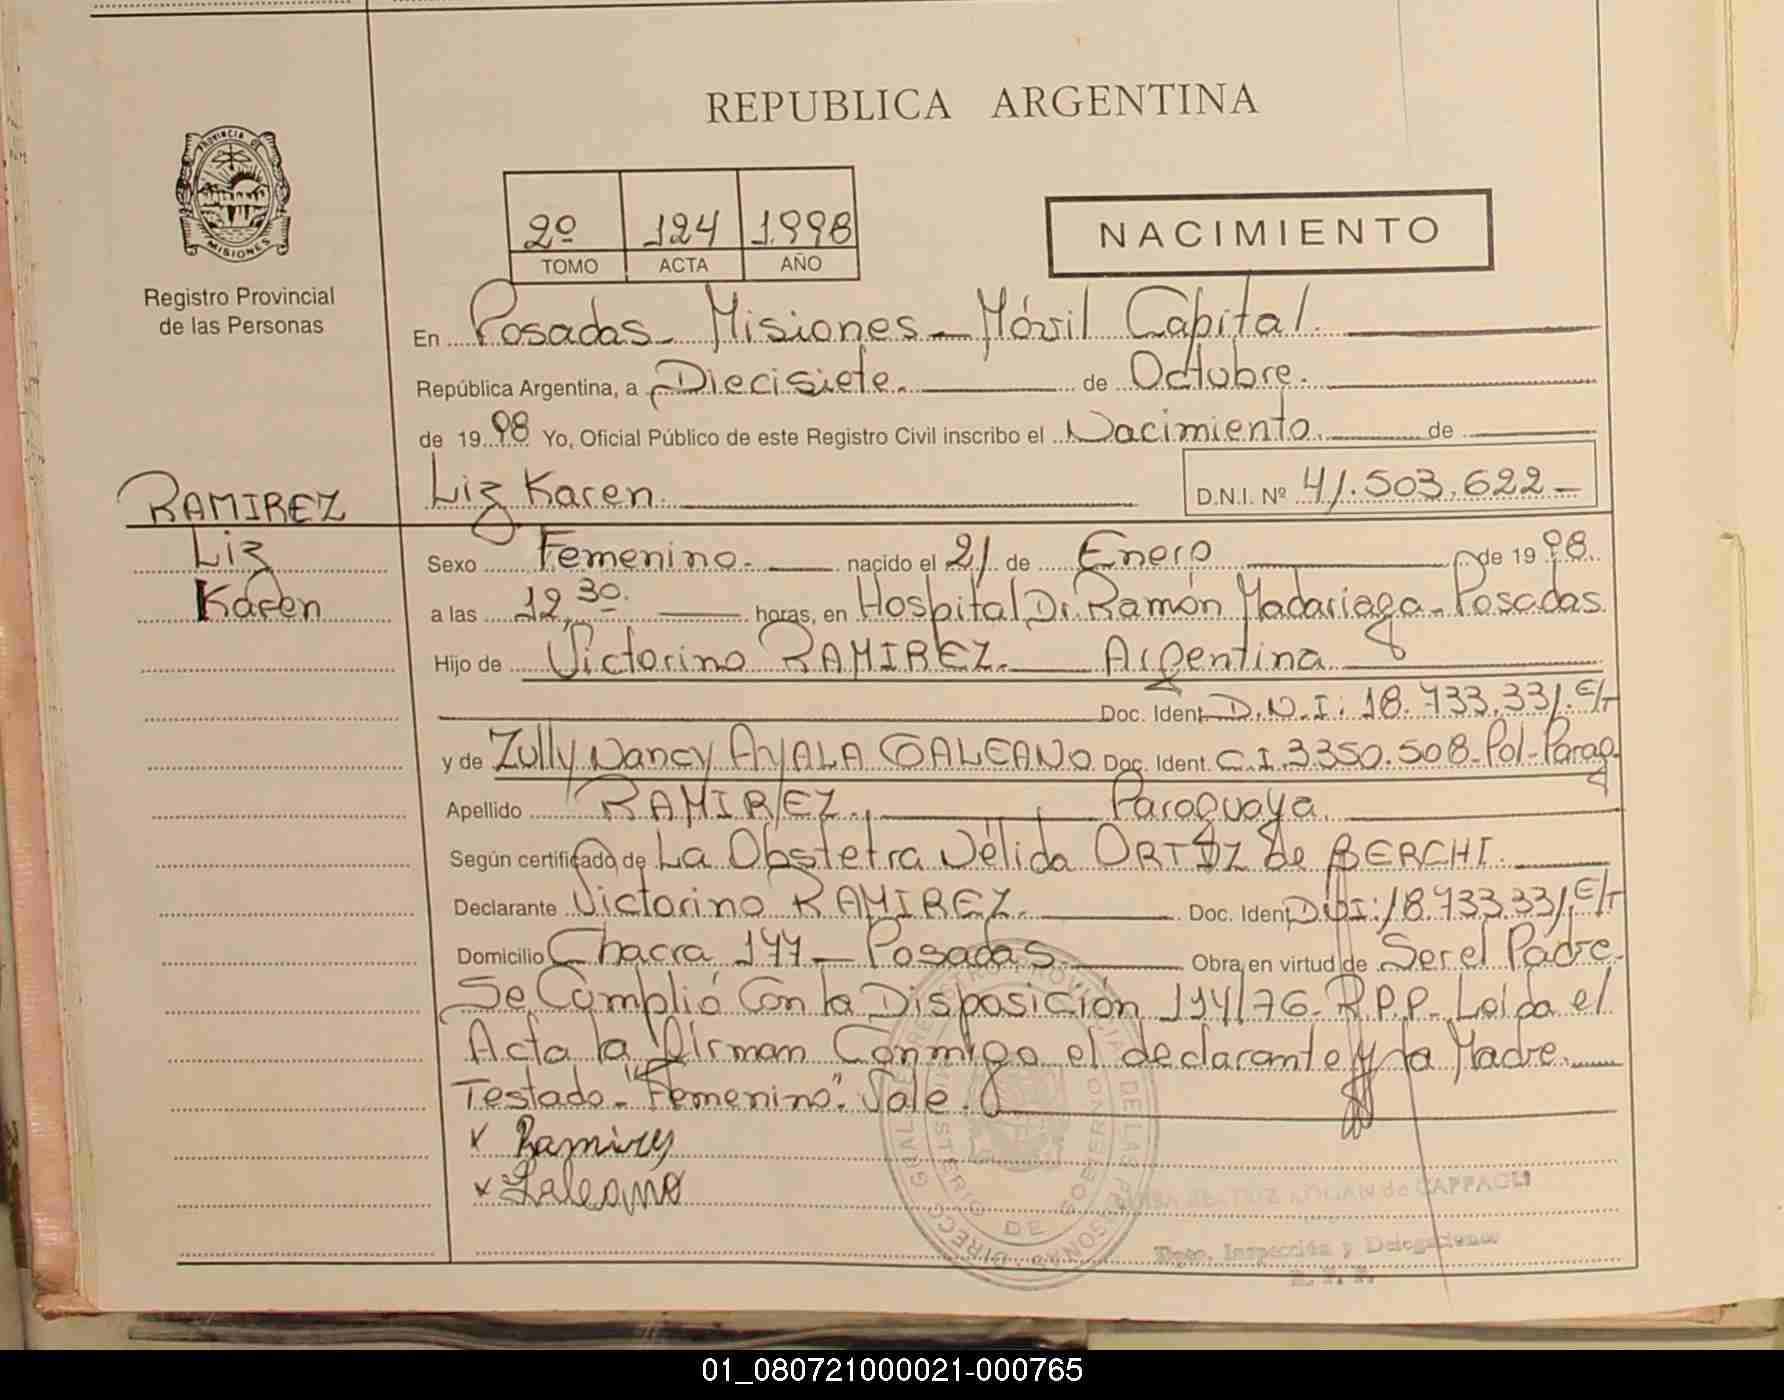 REPUBLICA ARGENTINA
PROVINCIA DE
MISIONES
Registro Provincial
de las Personas
2º 124 1.998
TOMO ACTA AÑO
NACIMIENTO
En Posadas - Misiones - Móvil Capital.
República Argentina, a Diecisiete. de Octubre.
de 19 98 Yo, Oficial Público de este Registro Civil inscribo el Nacimiento de
Liz Karen. D.N.I. Nº 41.503.622-
RAMIREZ
Liz
Karen
Sexo Femenino. nacido el 21 de Enero de 19 98.
a las 12,30. horas, en Hospital Dr. Ramón Madariaga - Posadas
Hijo de Victorino RAMIREZ. Argentina
Doc. Ident. D.N.I: 18.733.331.E/T
y de Zully Nancy AYALA GALEANO Doc. Ident. C.I.3350.508-Pol-Parag.
Apellido RAMIREZ. Paraguaya.
Según certificado de La Obstetra Nélida ORTIZ de BERCHI.
Declarante Victorino RAMIREZ. Doc. Ident. D.N.I: 18.733.331,E/T
Domicilio Chacra 177 - Posadas. Obra en virtud de Ser el Padre.
Se Cumplió Con la Disposición 114/76 - R.P.P. - Leída el
Acta la firman Conmigo el declarante y la Madre.
Testado - "Femenino". Vale.
x Ramirez
x Galeano
BEATRIZ de CAPPAGLI
Dpto. Inspección y Delegaciones
R. P. P.
01_080721000021-000765